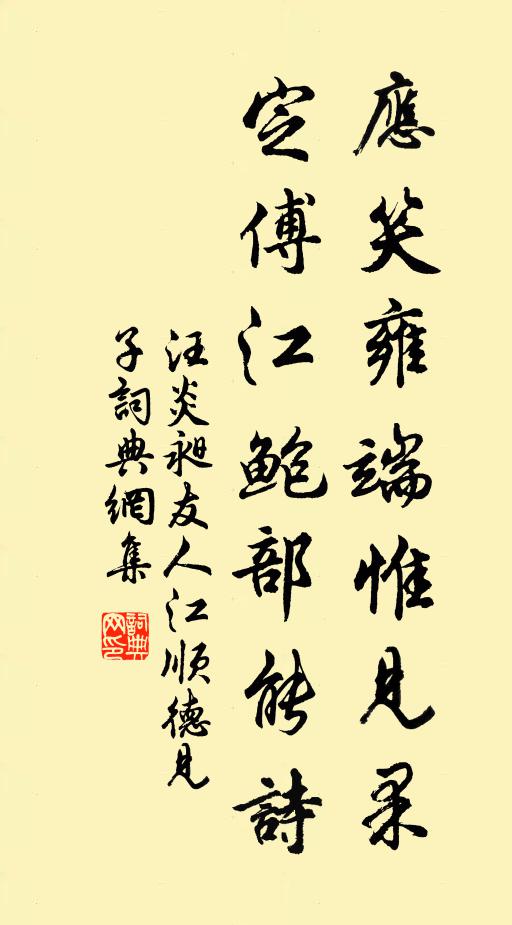 應笑雍端惟見果
定傅江鮑部能詩
汪炎昶友人江順德見
子詞典網集
詞典網印